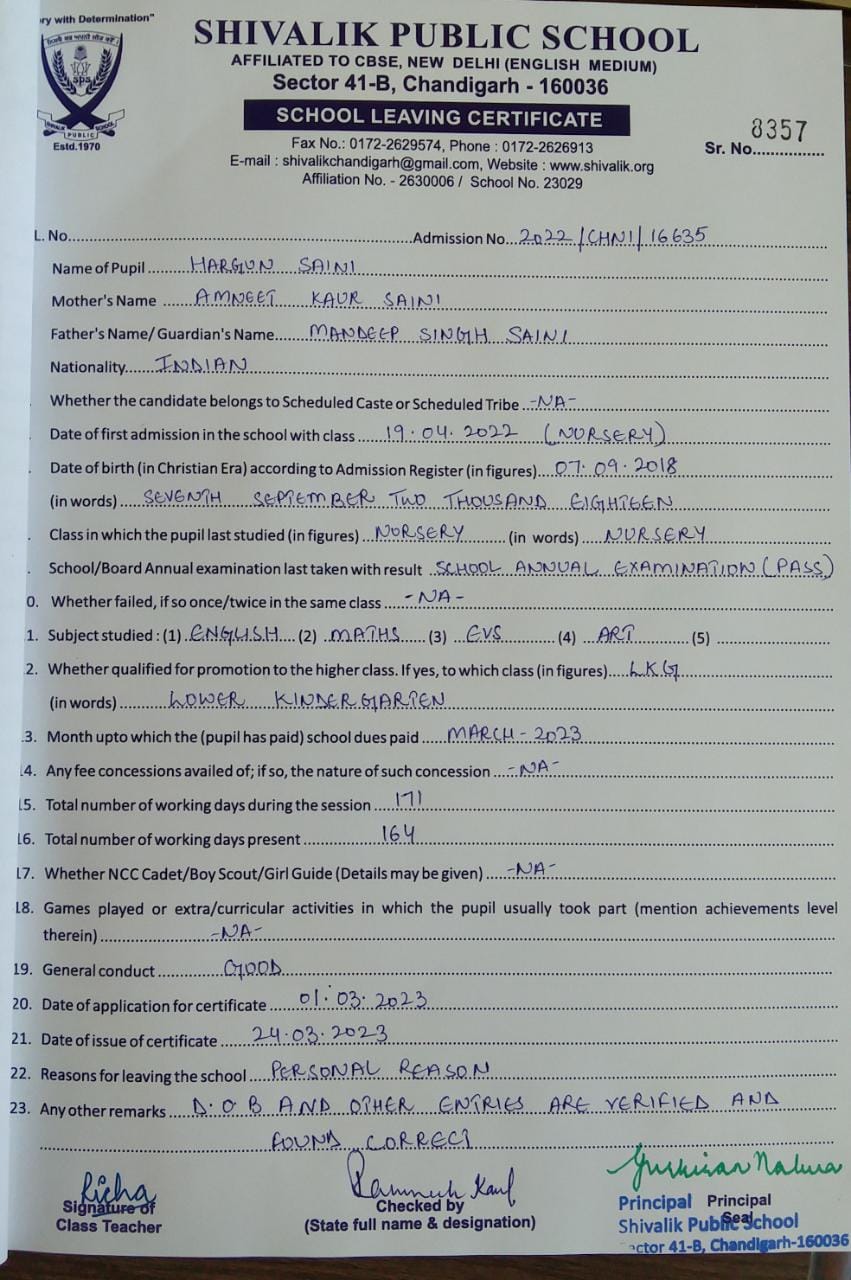 ry with Determination"
SHIVALIK PUBLIC SCHOOL
AFFILIATED TO CBSE, NEW DELHI (ENGLISH MEDIUM)
Sector 41-B, Chandigarh - 160036
SCHOOL LEAVING CERTIFICATE
SPS
SHIVALIK PUBLIC SCHOOL
Estd.1970
Fax No.: 0172-2629574, Phone : 0172-2626913
E-mail : shivalikchandigarh@gmail.com, Website : www.shivalik.org
Affiliation No. - 2630006 / School No. 23029
Sr. No. 8357
L. No. Admission No. 2022/CHNI/16635
Name of Pupil HARGUN SAINI
Mother's Name AMNEET KAUR SAINI
Father's Name/ Guardian's Name MANDEEP SINGH SAINI
Nationality INDIAN
Whether the candidate belongs to Scheduled Caste or Scheduled Tribe -NA-
Date of first admission in the school with class 19.04.2022 (NURSERY)
Date of birth (in Christian Era) according to Admission Register (in figures) 07.09.2018
(in words) SEVENTH SEPTEMBER TWO THOUSAND EIGHTEEN
Class in which the pupil last studied (in figures) NURSERY (in words) NURSERY
School/Board Annual examination last taken with result SCHOOL ANNUAL EXAMINATION (PASS)
0. Whether failed, if so once/twice in the same class -NA-
1. Subject studied : (1) ENGLISH (2) MATHS (3) EVS (4) ART (5)
2. Whether qualified for promotion to the higher class. If yes, to which class (in figures) LKG
(in words) LOWER KINDERGARTEN
3. Month upto which the (pupil has paid) school dues paid MARCH - 2023
4. Any fee concessions availed of; if so, the nature of such concession -NA-
15. Total number of working days during the session 171
16. Total number of working days present 164
17. Whether NCC Cadet/Boy Scout/Girl Guide (Details may be given) -NA-
18. Games played or extra/curricular activities in which the pupil usually took part (mention achievements level
therein) -NA-
19. General conduct GOOD
20. Date of application for certificate 01.03.2023
21. Date of issue of certificate 24.03.2023
22. Reasons for leaving the school PERSONAL REASON
23. Any other remarks D.O B AND OTHER ENTRIES ARE VERIFIED AND
FOUND CORRECT
Richa
Signature of
Class Teacher
Kaur
Checked by
(State full name & designation)
Principal Principal
Seal
Shivalik Public School
ector 41-B, Chandigarh-160036